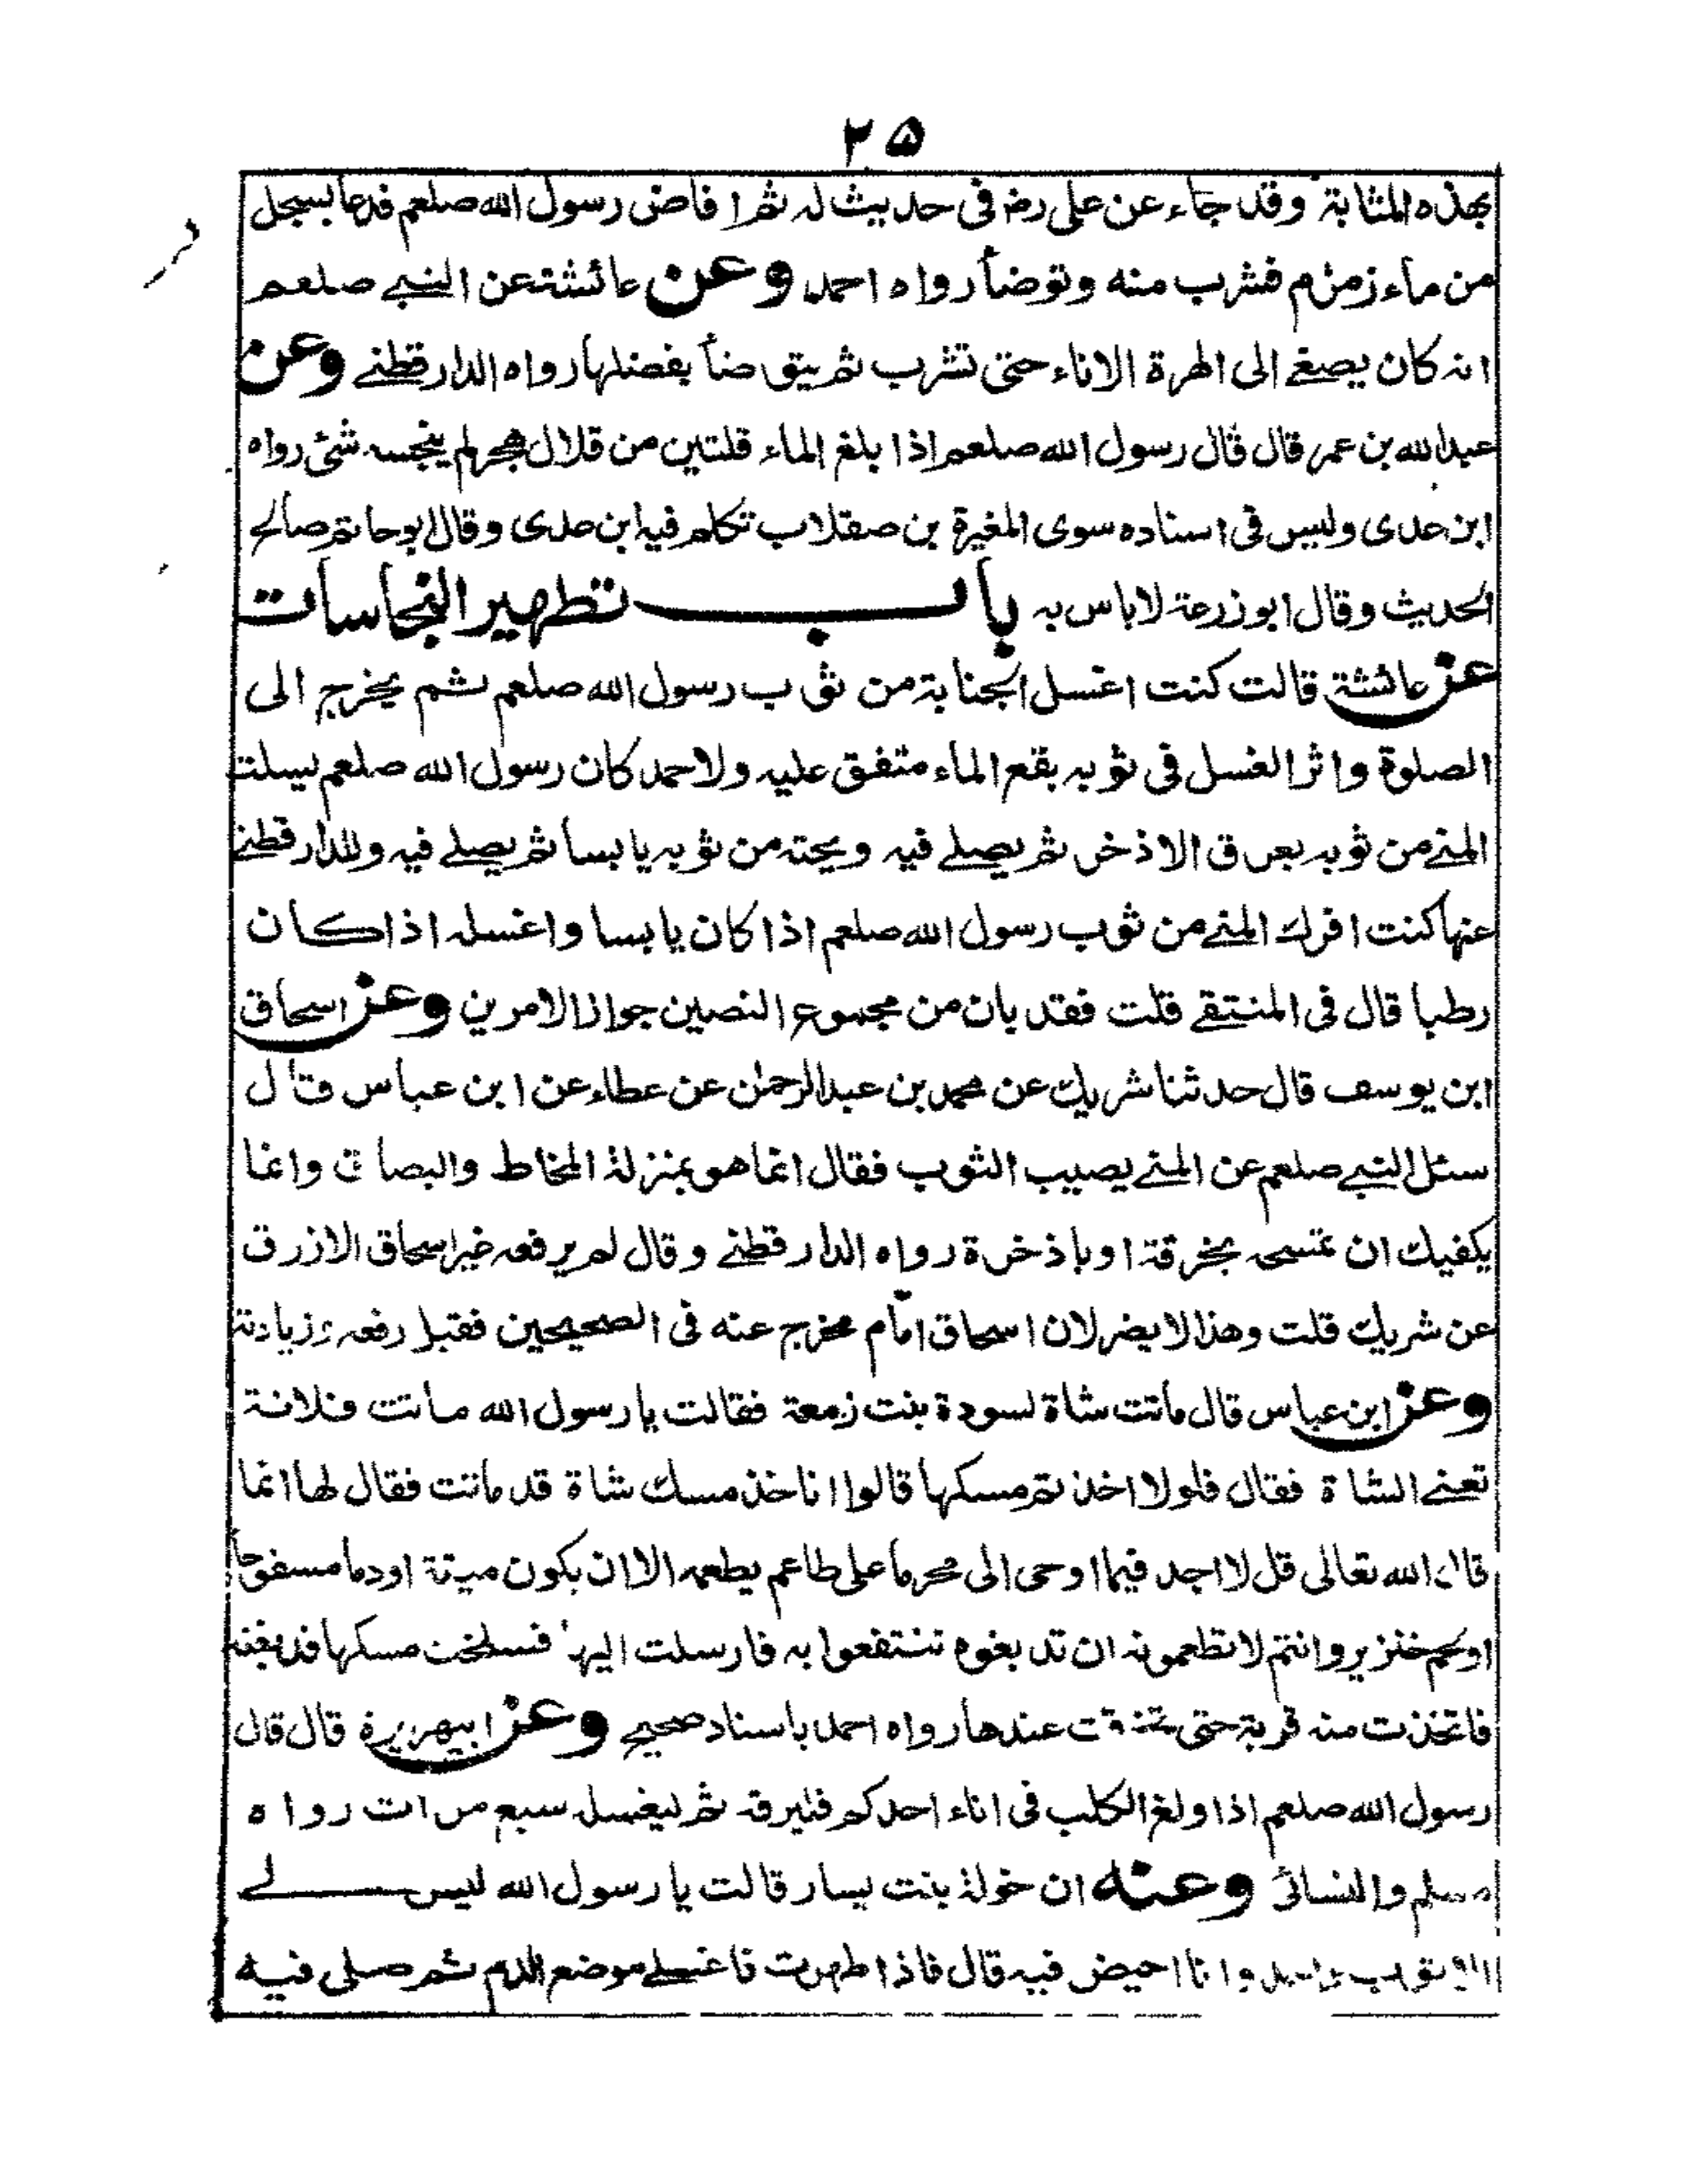 ٢٥
بهذه المثابة وقد جاء عن على رضه فى حديث له ثم افاض رسول الله صلعم فدعا بسجل
من ماء زمزم فشرب منه وتوضأ رواه احمد وعن عائشة عن النبے صلعم
انه كان يصغے الى الهرة الاناء حتى تشرب ثم يتوضأ بفضلها رواه الدارقطنے وعن
عبدالله بن عمر قال قال رسول الله صلعم اذا بلغ الماء قلتين من قلال هجر لم ينجسه شئ رواه
ابن عدى وليس فى اسناده سوى المغيرة بن صقلاب تكلم فيه ابن عدى وقال ابو حاتم صالح
الحديث وقال ابو زرعة لا باس به باب تطهير النجاسات
عن عائشة قالت كنت اغسل الجنابة من ثوب رسول الله صلعم ثم يخرج الى
الصلوة واثر الغسل فى ثوبه بقع الماء متفق عليه ولاحمد كان رسول الله صلعم يسلت
المنے من ثوبه بعرق الاذخر ثم يصلے فيه ويحته من ثوبه يابسا ثم يصلے فيه وللدارقطنے
عنها كنت افرك المنے من ثوب رسول الله صلعم اذا كان يابسا واغسله اذا كان
رطبا قال فى المنتقے قلت فقد بان من مجموع النصين جواز الامرين وعن اسحاق
ابن يوسف قال حدثنا شريك عن محمد بن عبدالرحمن عن عطاء عن ابن عباس قال
سئل النبے صلعم عن المنے يصيب الثوب فقال انما هو بمنزلة المخاط والبصاق وانما
يكفيك ان تمسحه بخرقة او باذخرة رواه الدارقطنے وقال لم يرفعه غير اسحاق الازرق
عن شريك قلت وهذا لا يضر لان اسحاق امام مخرج عنه فى الصحيحين فقبل رفعه وزيادته
وعن ابن عباس قال ماتت شاة لسودة بنت زمعة فقالت يا رسول الله ماتت فلانة
تعنے الشاة فقال فلولا اخذتم مسكها قالوا اناخذ مسك شاة قد ماتت فقال لها انما
قال الله تعالى قل لا اجد فيما اوحى الى محرما على طاعم يطعمه الا ان يكون ميتة او دما مسفوحاً
او لحم خنزير وانتم لا تطعمونه ان تدبغوه تنتفعوا به فارسلت اليها فسلخت مسكها فدبغته
فاتخذت منه قربة حتى تخرقت عندها رواه احمد باسناد صحيح وعن ابيهريرة قال قال
رسول الله صلعم اذا ولغ الكلب فى اناء احدكم فليرقه ثم ليغسله سبع مرات رواه
مسلم والنسائى وعنه ان خولة بنت يسار قالت يا رسول الله ليس لے
الا ثوب واحد وانا احيض فيه قال فاذا طهرت فاغسلے موضع الدم ثم صلى فيه